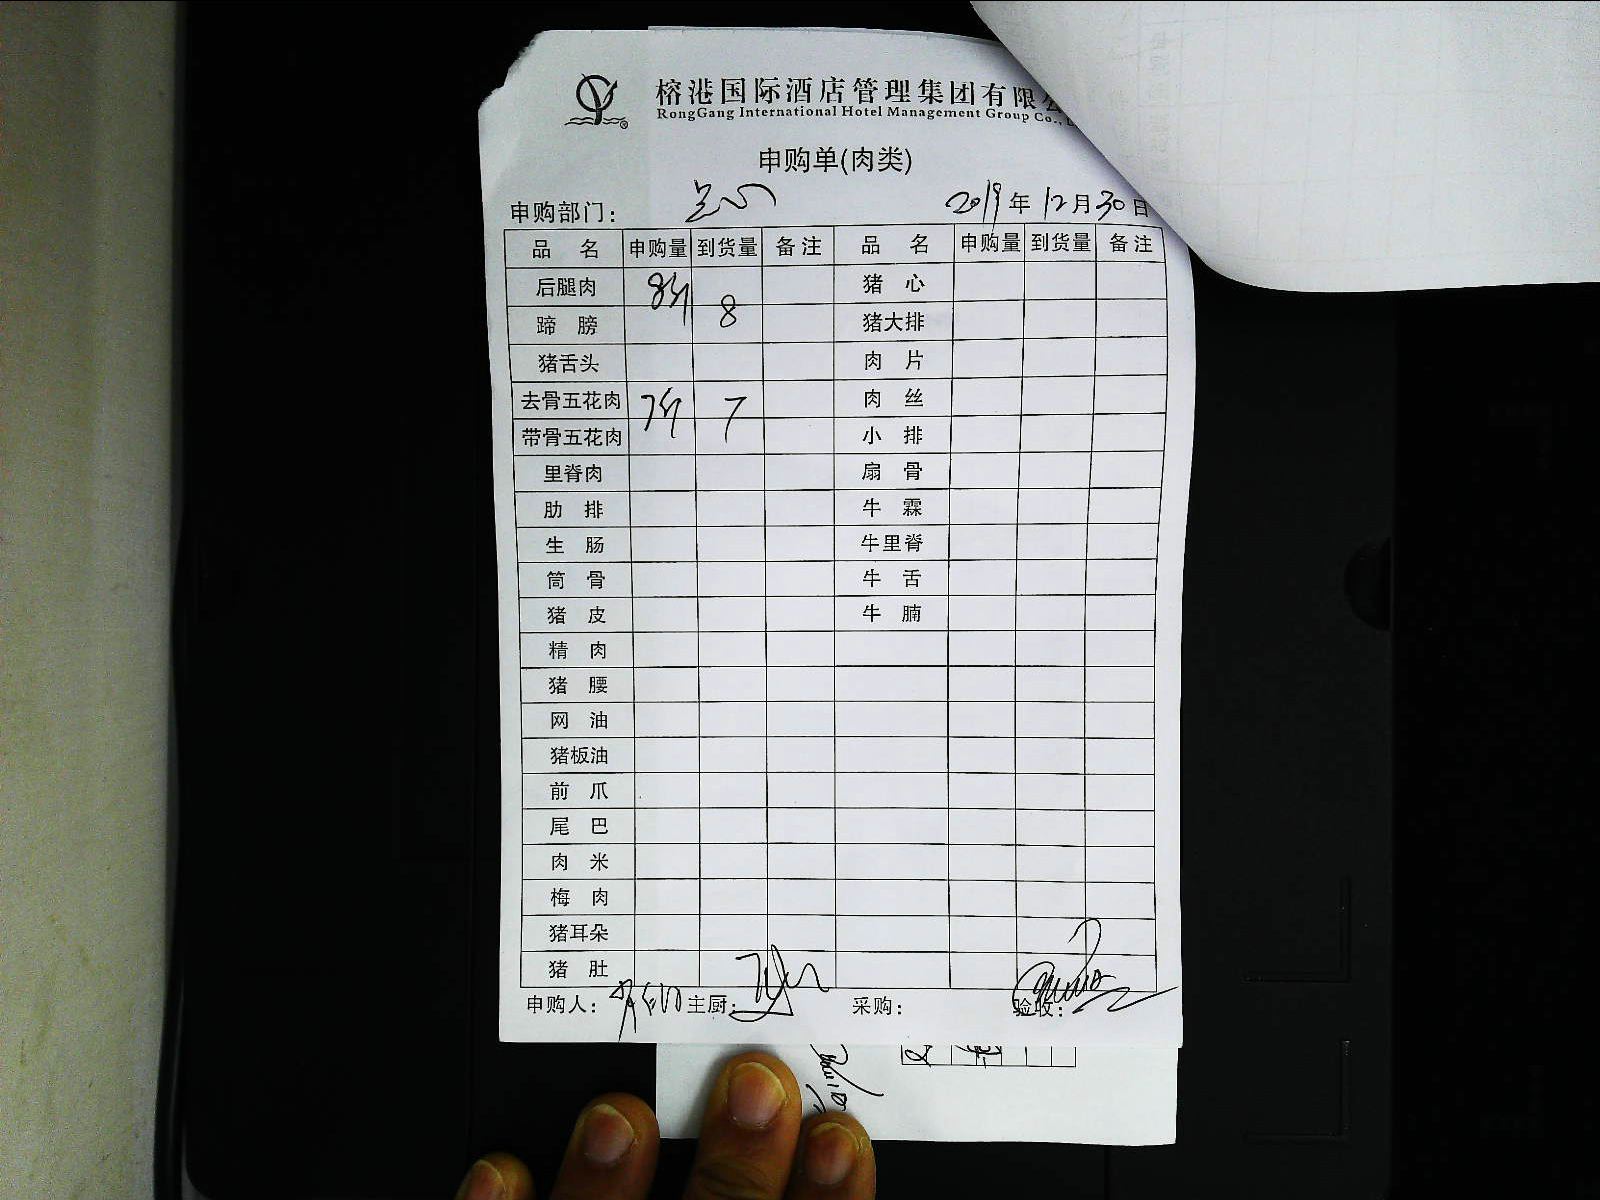 榕港国际酒店管理集团有限
RongGang International Hotel Management Group Co.,
申购单(肉类)
申购部门: 点心 2019年12月30日
品 名 申购量 到货量 备注 品 名 申购量 到货量 备注
后腿肉 8斤 8 猪 心
蹄 膀 猪大排
猪舌头 肉 片
去骨五花肉 7斤 7 肉 丝
带骨五花肉 小 排
里脊肉 扇 骨
肋 排 牛 霖
生 肠 牛里脊
筒 骨 牛 舌
猪 皮 牛 腩
精 肉
猪 腰
网 油
猪板油
前 爪
尾 巴
肉 米
梅 肉
猪耳朵
猪 肚
申购人: 主厨: 采购: 验收: